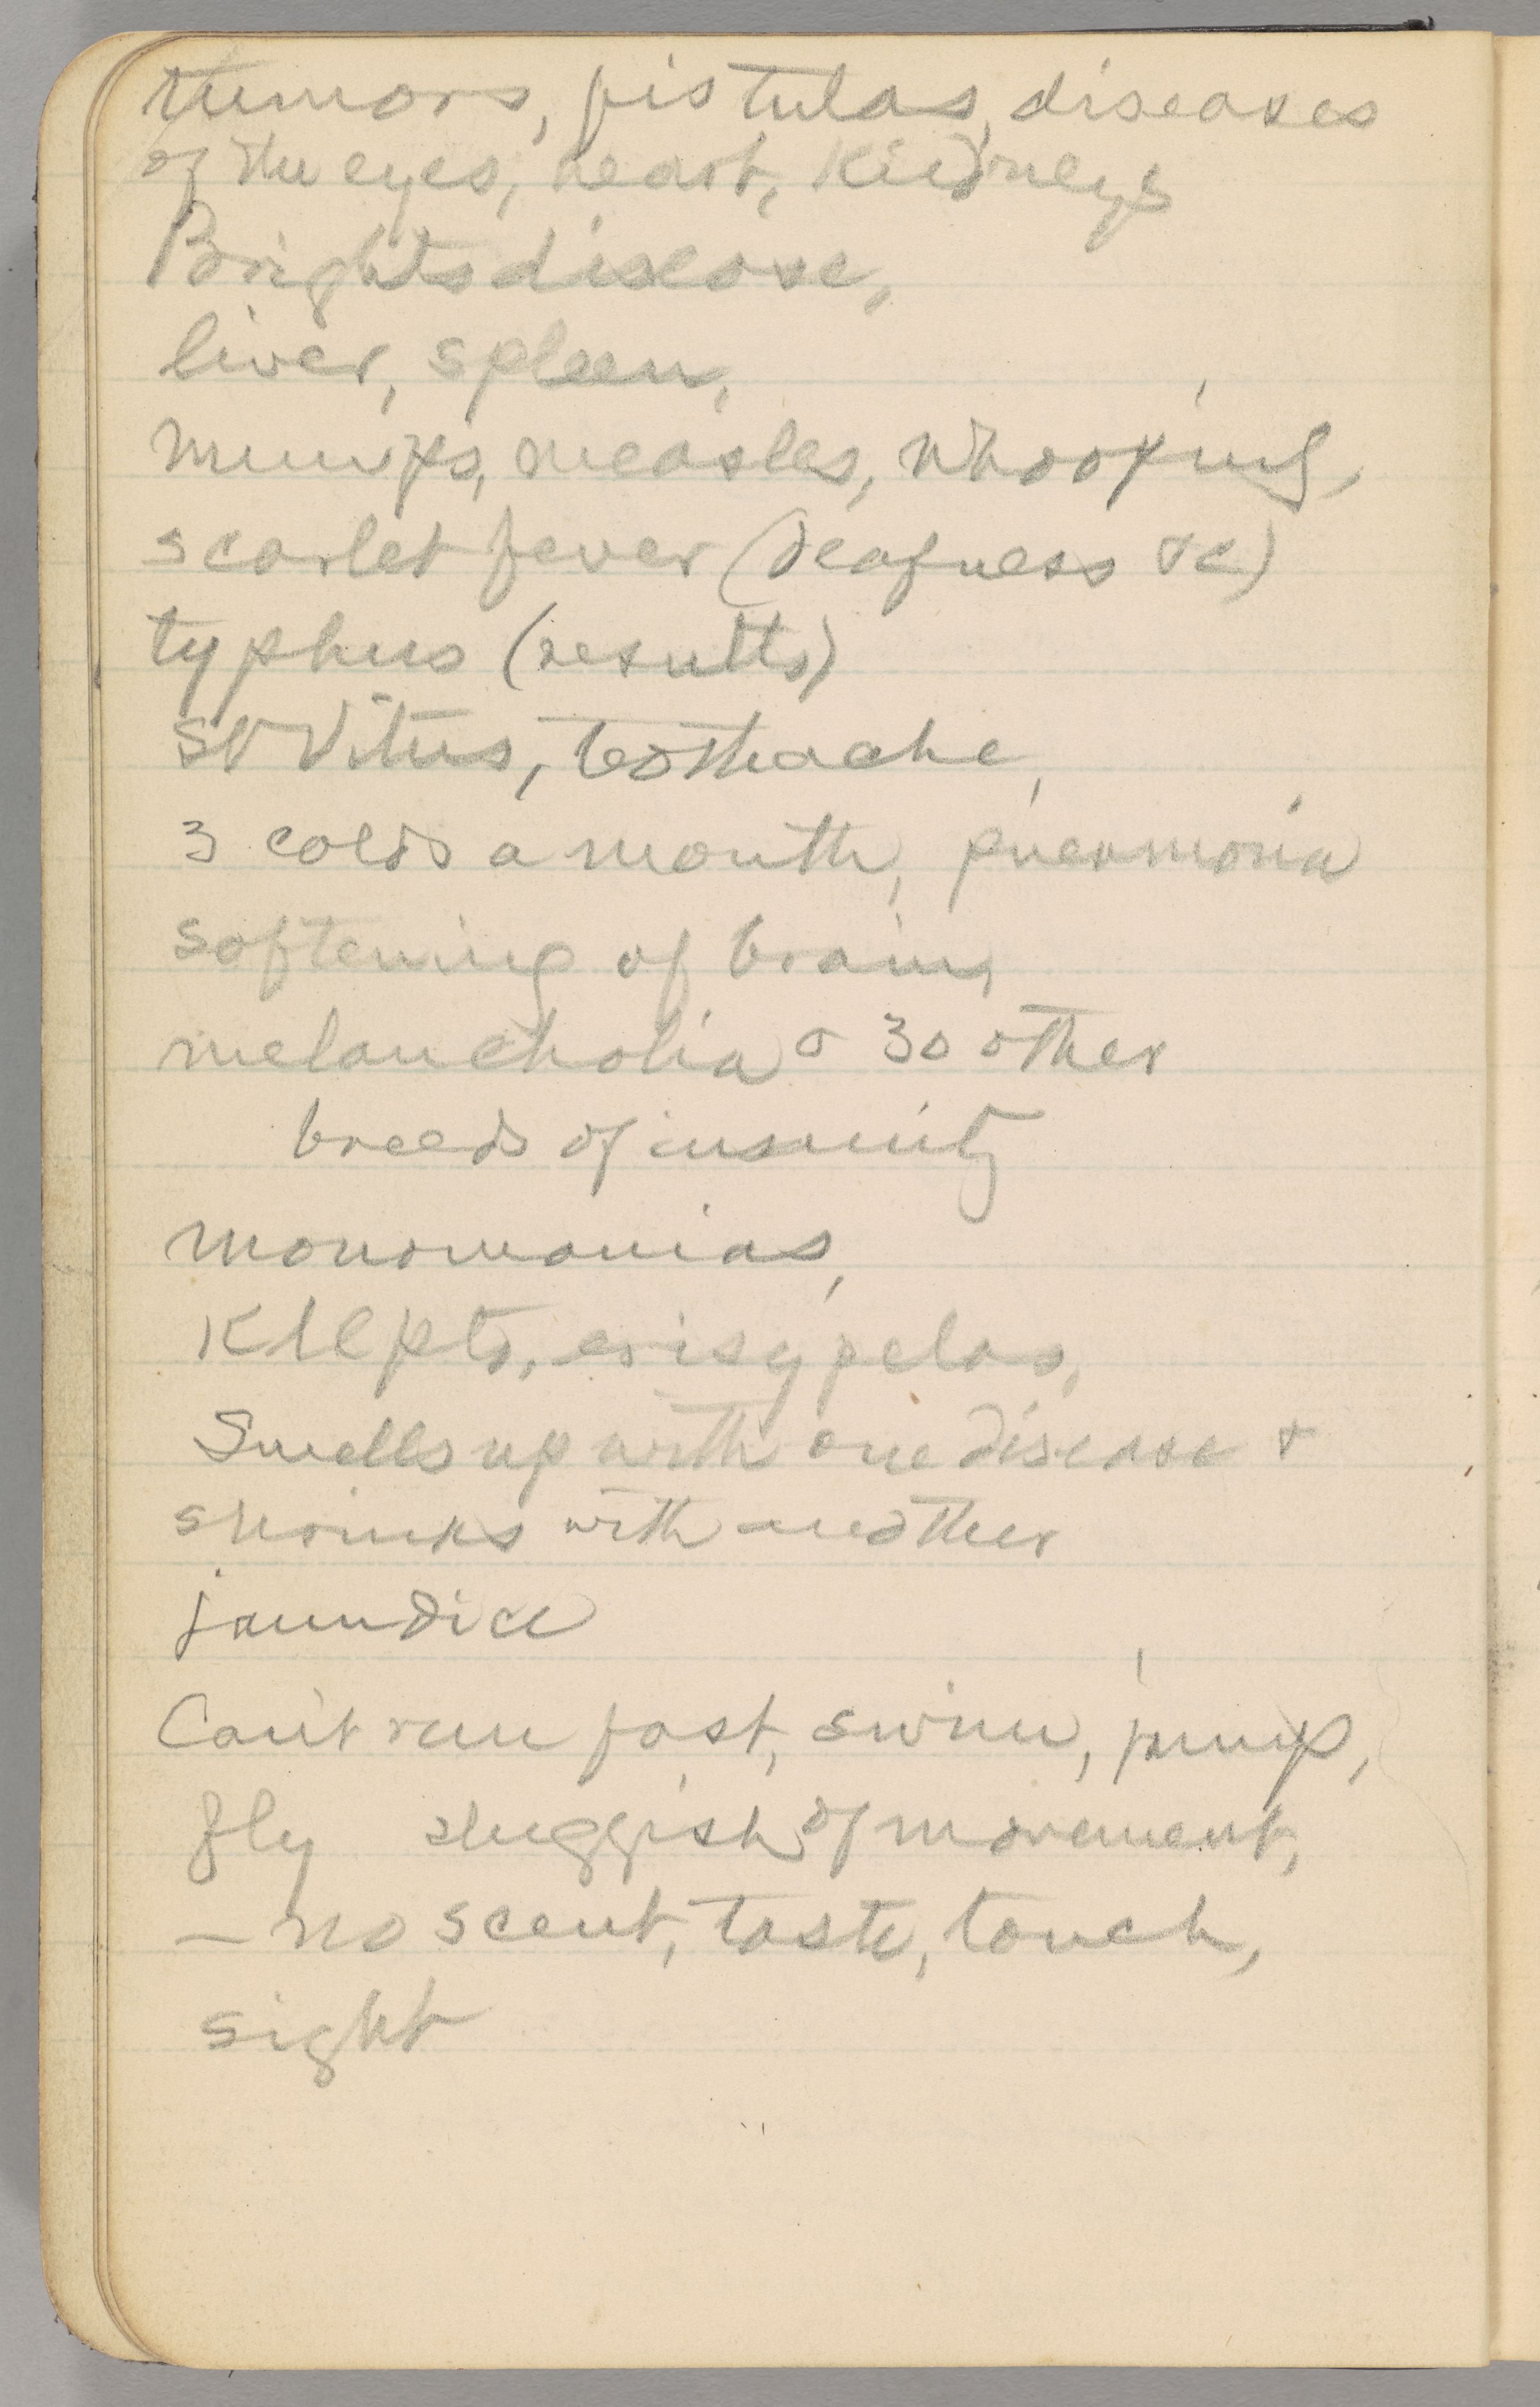 tumors, fistulas, diseases
of the eyes, heart, kidneys
Brights disease,
liver, spleen,
mumps, measles, whooping,
scarlet fever (deafness &c)
typhus (results)
St Vitus, toothache,
3 colds a month, pneumonia
softening of brain,
melancholia & 30 other
breeds of insanity
monomanias,
Klepto, erisypelas,
Swells up with one disease &
shrinks with another
jaundice
Can't run fast, swim, jump,
fly sluggish of movement,
— no scent, taste, touch,
sight